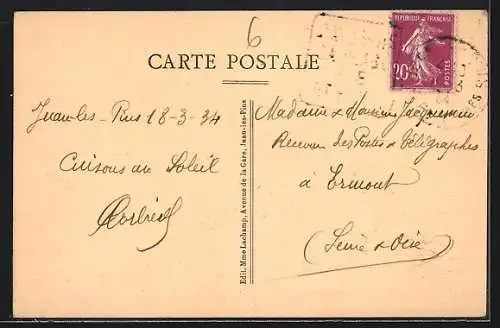 6
CARTE POSTALE
REPUBLIQUE FRANÇAISE
20c
POSTES
Juan-les-Pins 18-3-34
Cuisons au Soleil
Madame & Monsieur Jacquemin
Receveur des Postes & Télégraphes
à Ermont
(Seine & Oise)
Edit. Mme Lachamp, Avenue de la Gare, Juan-les-Pins